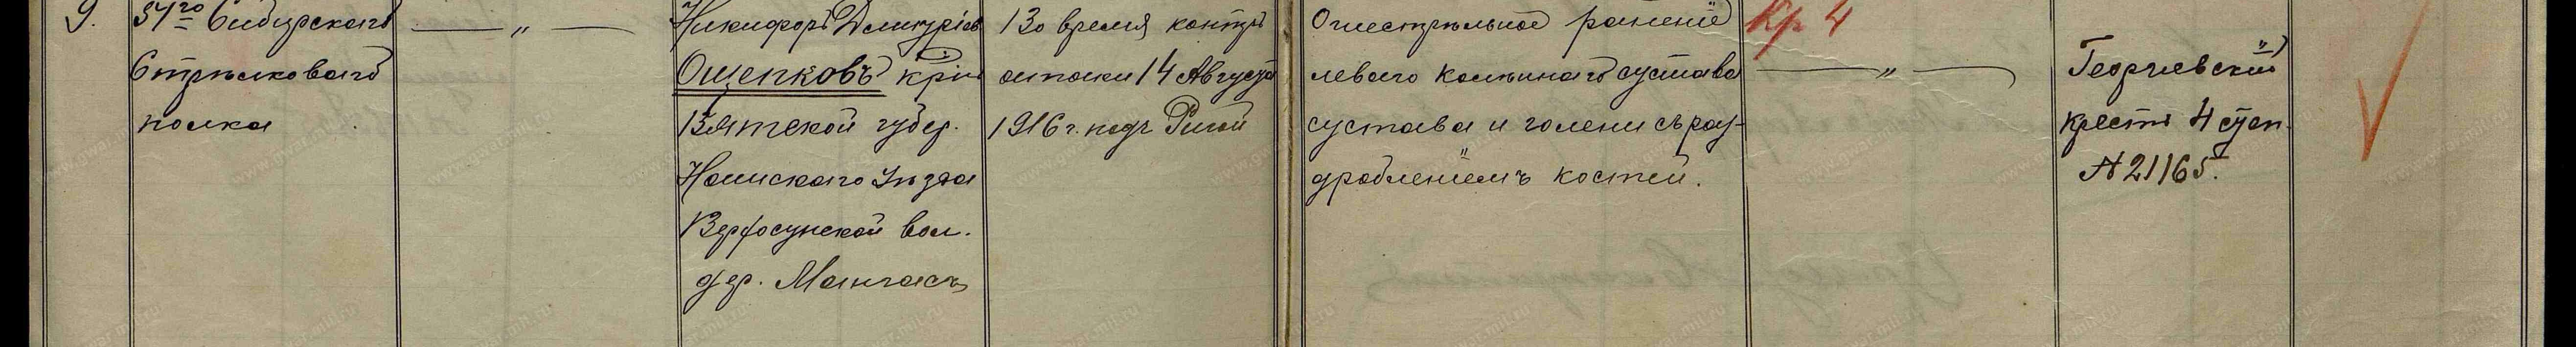 9.
54го Сибирскаго
Стрѣлковаго
полка
— „ —
Никифоръ Дмитріев
Ощепковъ крін
Вятской губер.
Нолискаго уѣзда
Верхосунской вол.
дер.
Во время контръ
атаки 14 Августа
1916 г. подъ Ригой
Огнестрѣльное раненіе
леваго колѣннаго сустава
сустава и голени съ раз-
дробленіемъ костей.
Кр 4
— „ —
Георгиевскій
крестъ 4 степ.
№ 21165.